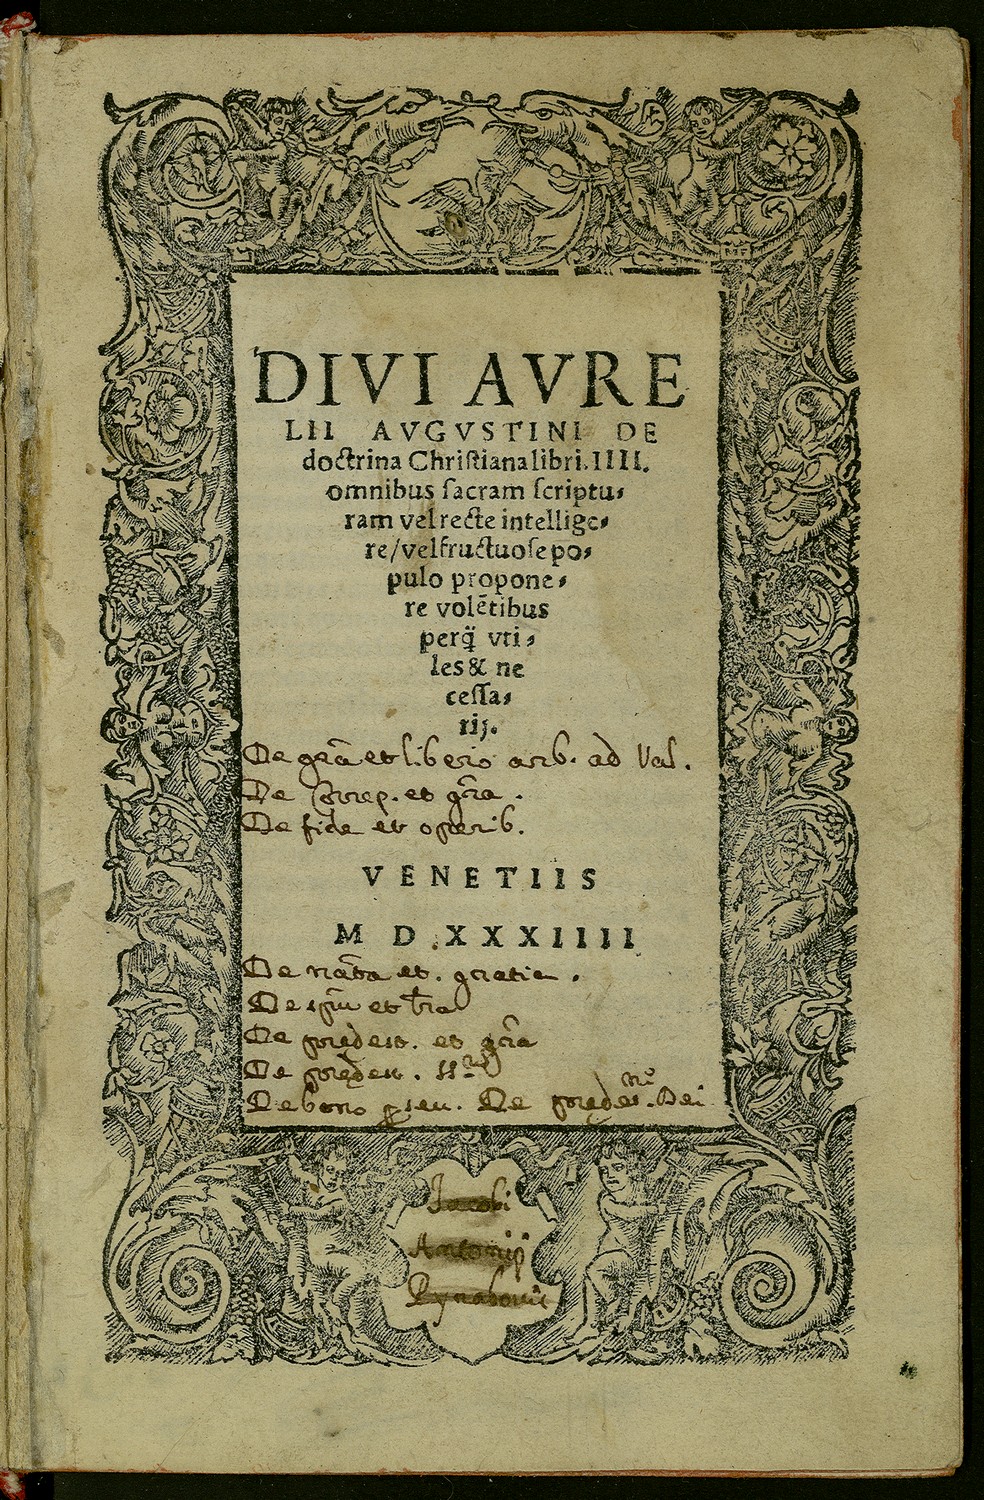 DIVI AVRE
LII AVGVSTINI DE
doctrina Christiana libri. IIII.
omnibus sacram scriptu-
ram vel recte intellige-
re/ vel fructuose po-
pulo propone-
re volẽtibus
perq̃ vti-
les & ne
cessa-
rij.
De gr̃a et libero arb. ad Val.
De Correp. et gr̃a.
De fide et operib.
VENETIIS
M D XXXIIII
De nat̃a et. gratie.
De sp̃u et lr̃a
De predest. et gr̃a
De predest.
De bono ꝑseu. De predes. Dei
Jacobi
Antonii